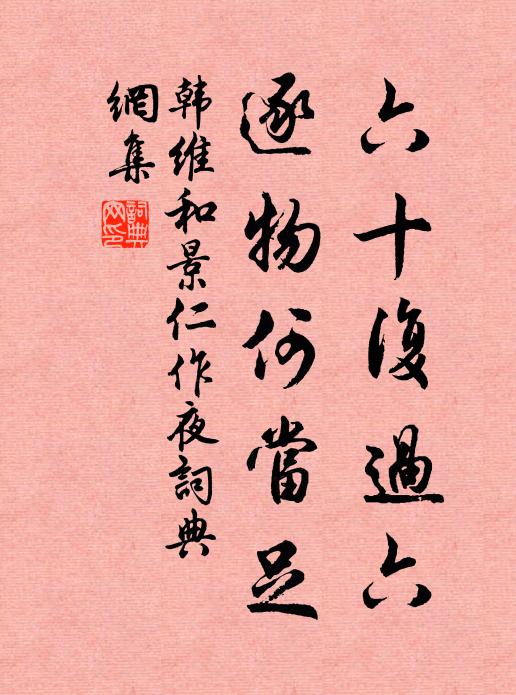 六十復過六
逐物何當足
韩維和景仁作夜詞典
網集
詞典
网印